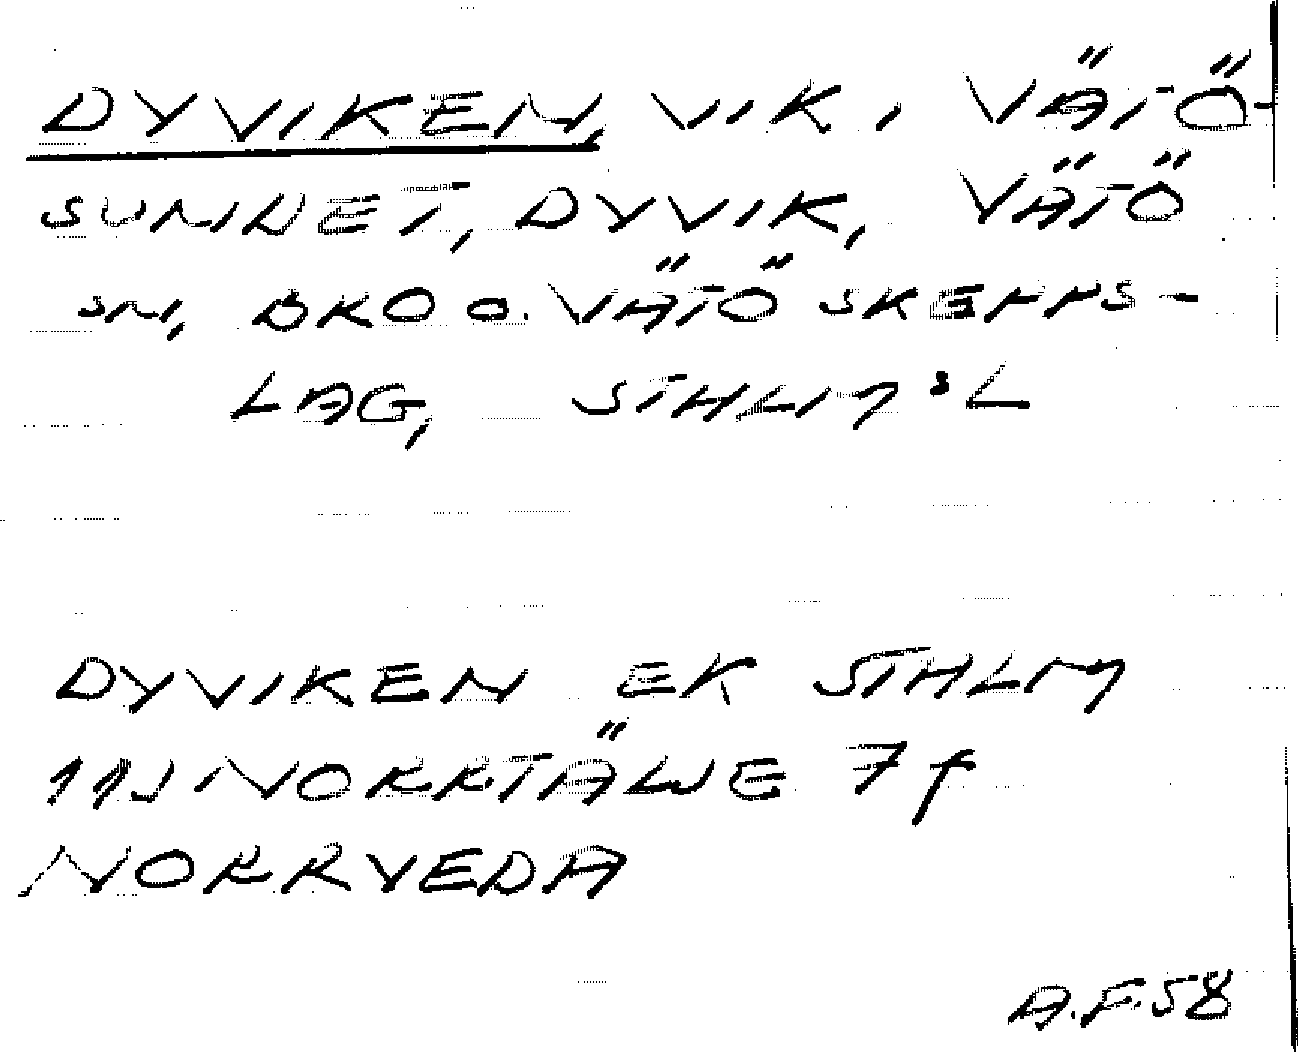 DYVIKEN, VIK I VÄTÖ-
SUNDET, DYVIK, VÄTÖ
SN, BRO O. VÄTÖ SKEPPS-
LAG, STHLMS L
DYVIKEN EK STHLM
11J NORRTÄLJE 7 f
NORRVEDA
A.F. 58